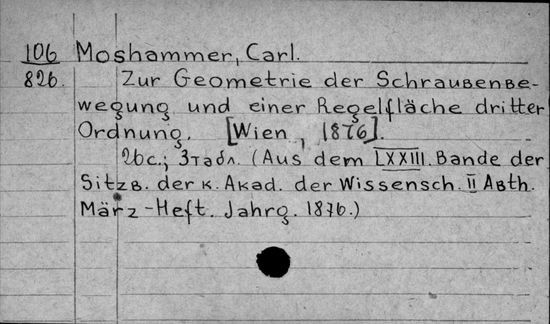 106 Moshammer, Carl.
826. Zur Geometrie der Schraubenbe-
wegung und einer Regelfläche dritter
Ordnung. [Wien, 1876].
26с.; 3табл. (Aus dem LXXIII. Bande der
Sitzb. der k. Akad. der Wissensch. II Abth.
März-Heft. Jahrg. 1876.)